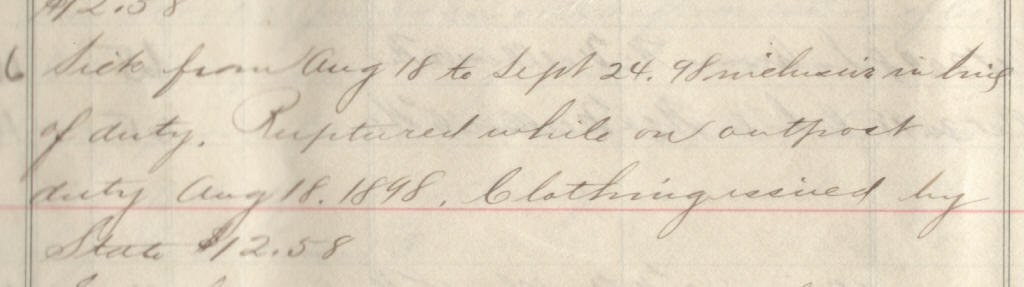 $12.58
6 Sick from Aug 18 to Sept 24. 98 inclusive in line
of duty. Ruptured while on outpost
duty Aug 18. 1898. Clothing issued by
State $12.58